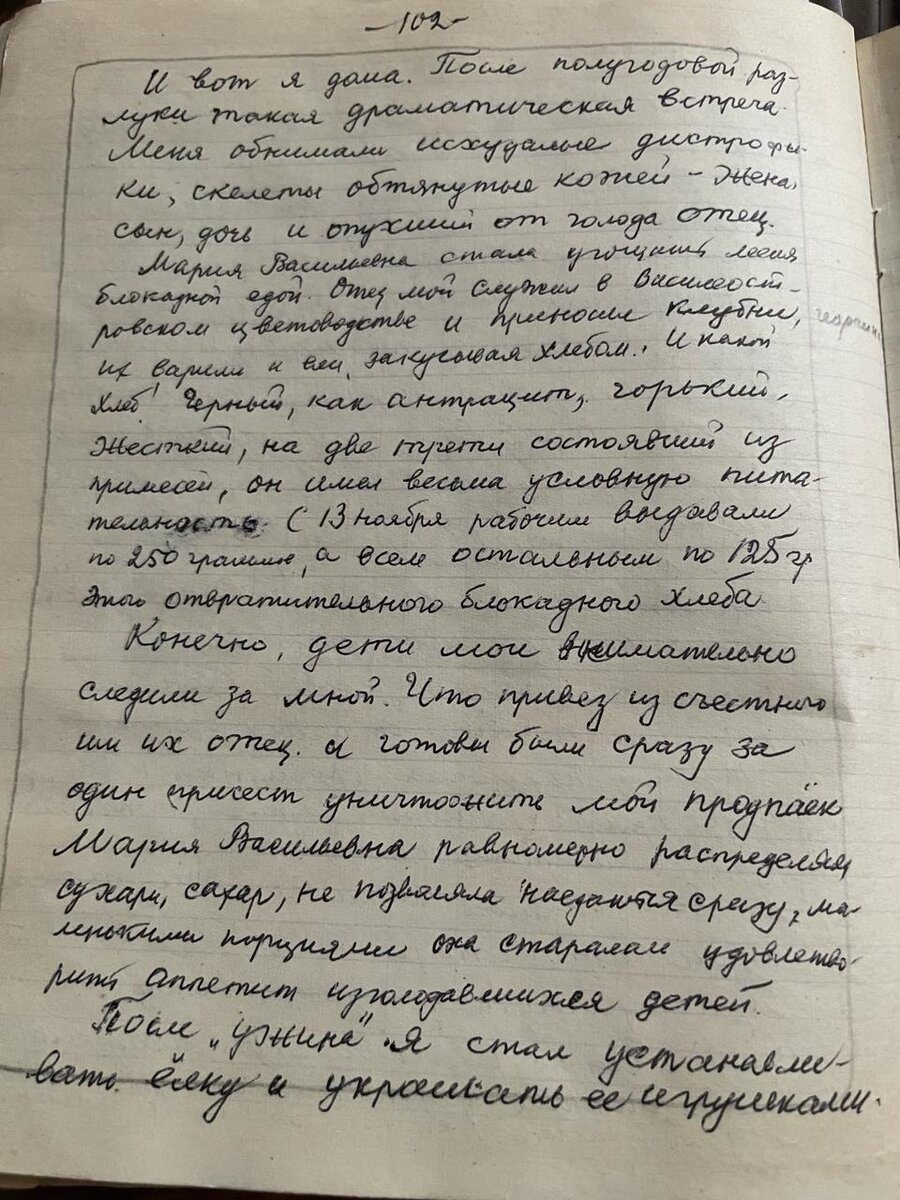 -102-
И вот я дома. После полугодовой раз-
луки такая драматическая встреча.
Меня обнимали исхудалые дистрофи-
ки, скелеты обтянутые кожей - жена,
сын, дочь и опухший от голода отец.
Мария Васильевна стала угощать меня
блокадной едой. Отец мой служил в Василеост-
ровском цветоводстве и приносил клубни,
их варили и ели, закусывая хлебом. И какой
хлеб! Черный, как антрацит, горький,
жесткий, на две трети состоявший из
примесей, он имел весьма условную пита-
тельность. С 13 ноября рабочим выдавали
по 250 грамм, а всем остальным по 125 гр
этого отвратительного блокадного хлеба.
Конечно, дети мои внимательно
следили за мной. Что привез из съестного
им их отец. И готовы были сразу за
один присест уничтожить мой продпаёк
Мария Васильевна равномерно распределяя
сухари, сахар, не позволяла наедаться сразу, ма-
ленькими порциями она старалась удовлетво-
рить аппетит изголодавшихся детей.
После „ужина" я стал устанавли-
вать ёлку и украшать ее игрушками.